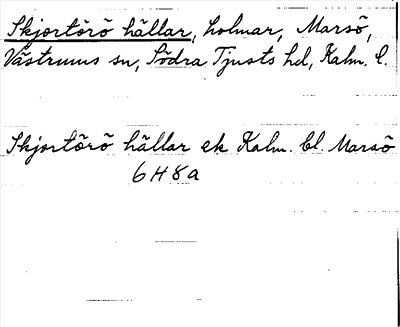 Skjortörö hällar, holmar, Marsö,
Västrums sn, Södra Tjusts hd, Kalm. l.
Skjortörö hällar ek Kalm. bl. Marsö
6H8a